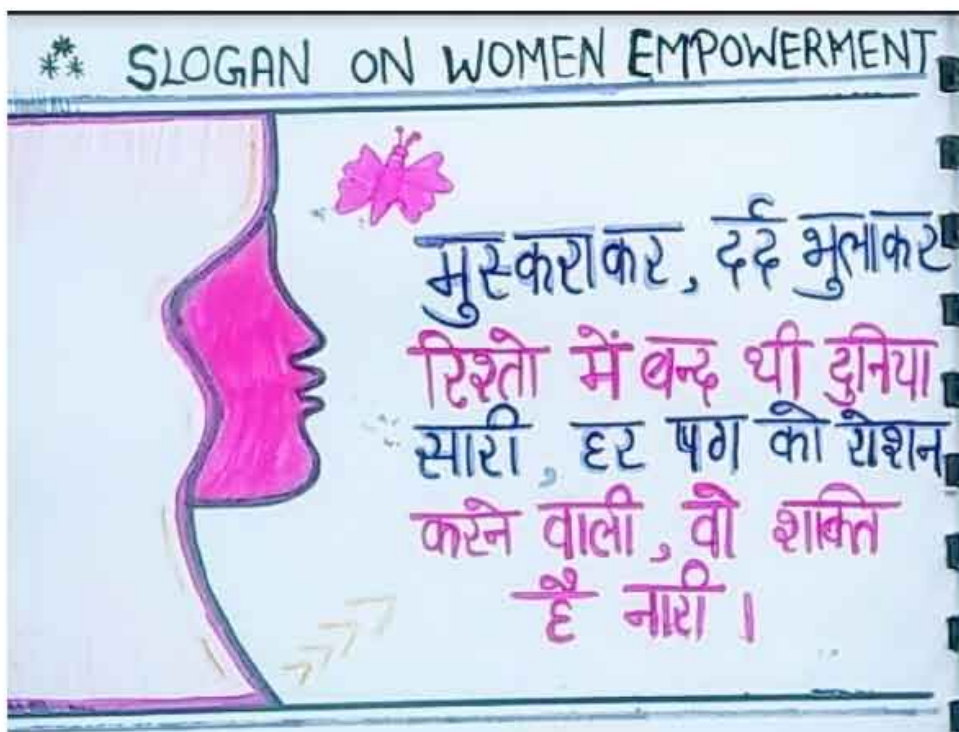 SLOGAN ON WOMEN EMPOWERMENT
मुस्कराकर, दर्द भुलाकर
रिश्तो में बन्द थी दुनिया
सारी, हर पग को रोशन
करने वाली, वो शक्ति
है नारी।